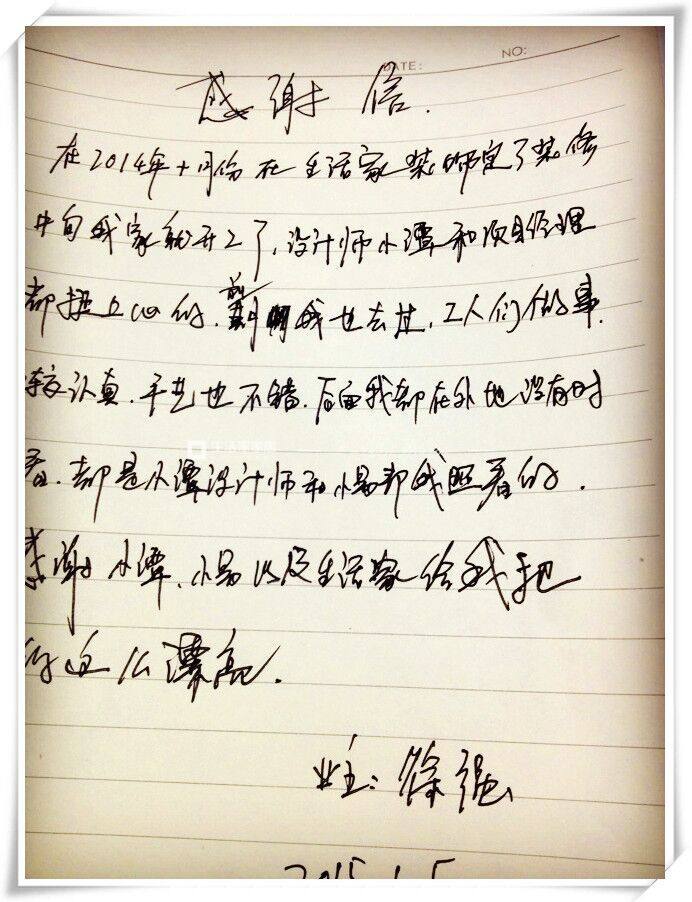 NO:
DATE:
感谢信.
在2014年十月份在生活家装饰定了装修
中旬我家就开工了,设计师小谭和项目经理
都挺上心的.前期我也去过,工人们做事
较认真.手艺也不错.后面我都在外地没有时
看.都是小谭设计师和小易帮我照看的.
感谢小谭、小易以及生活家给我把
的这么漂亮.
业主:徐强
2015.1.5